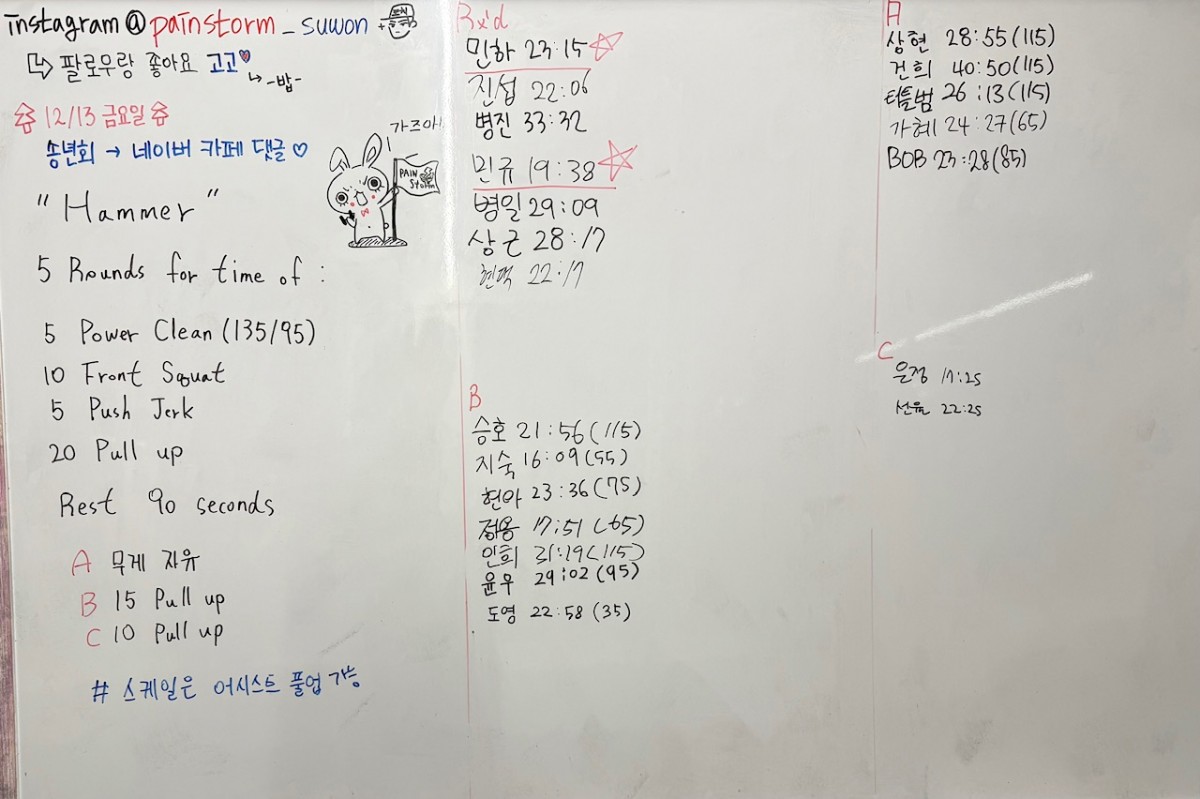 instagram@painstorm_suwon
↳ 팔로우랑 좋아요 고고♥
↳ -밥-
12/13 금요일
송년회 → 네이버 카페 댓글♡
가즈아!
PAIN Storm
"Hammer"
5 Rounds for time of :
5 Power Clean (135/95)
10 Front Squat
5 Push Jerk
20 Pull up
Rest 90 seconds
A 무게 자유
B 15 Pull up
C 10 Pull up
# 스케일은 어시스트 풀업 가능
Rx'd
민하 23:15☆
진섭 22:06
병진 33:32
민규 19:38☆
병일 29:09
상근 28:17
22:17
B
승호 21:56(115)
지숙 16:09(55)
현아 23:36(75)
정용 17:51(65)
인희 31:19(115)
윤우 29:02(95)
도영 22:58(35)
A
상현 28:55(115)
건희 40:50(115)
터틀범 26:13(115)
가혜 24:27(65)
BOB 23:28(85)
C
은정 17:25
선율 22:25